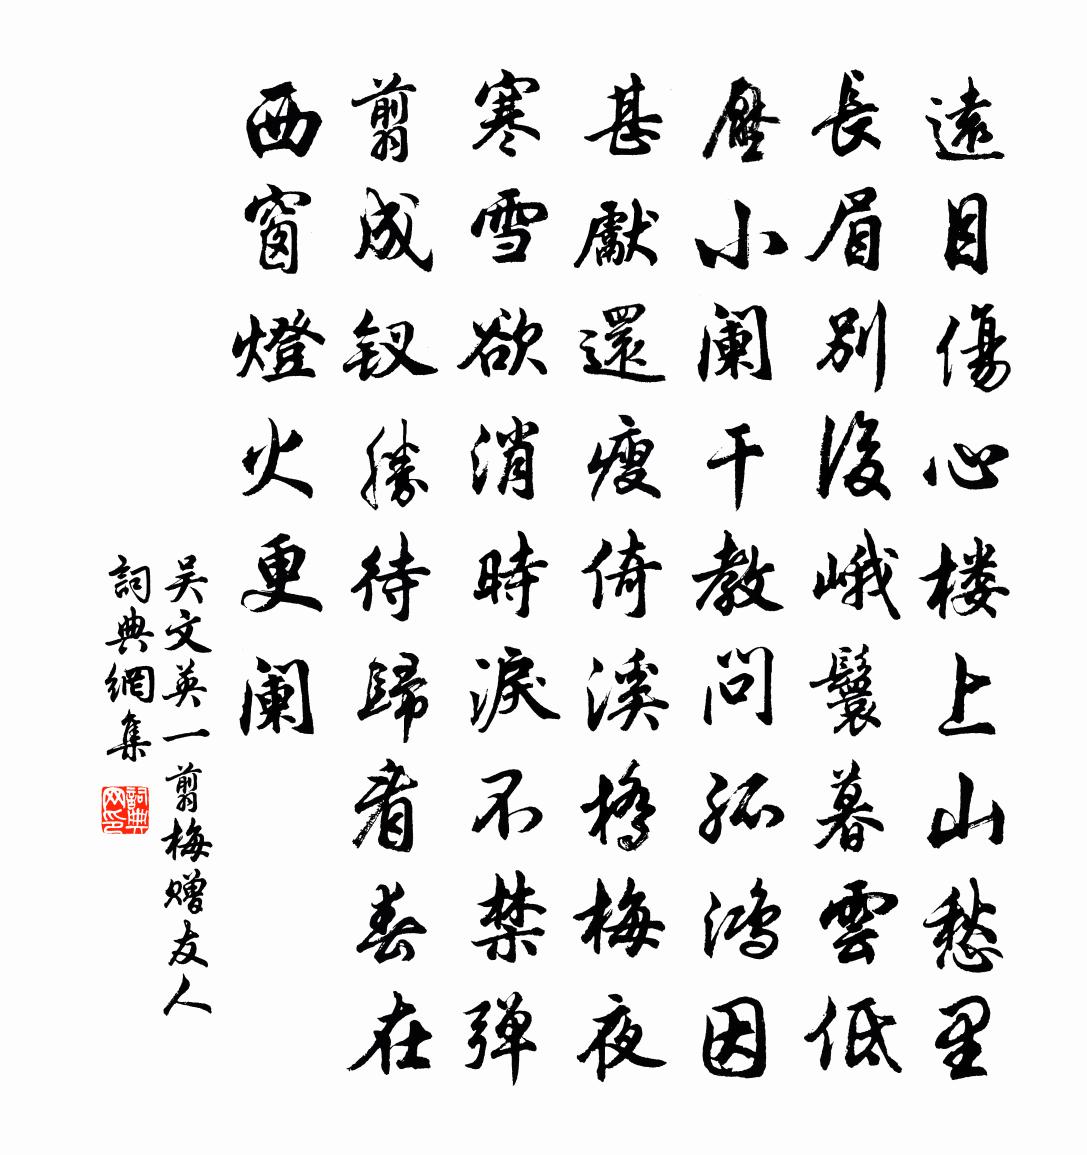 遠目傷心楼上山愁里
長眉别後峨鬟暮雲低
壓小阑干教問孤鴻因
甚獻還瘦倚溪橋梅夜
寒雪欲消時淚不禁彈
剪成钗勝待歸看春在
西窗燈火更阑
吴文英一剪梅赠友人
詞典網集
詞典网印